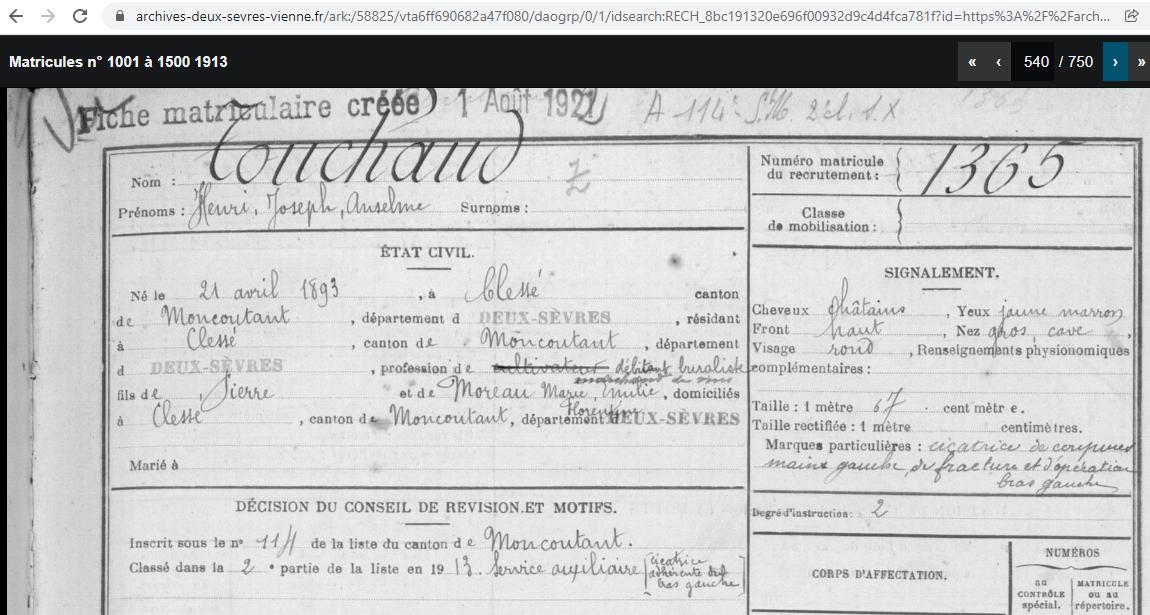 archives-deux-sevres-vienne.fr/ark:/58825/vta6ff690682a47f080/daogrp/0/1/idsearch:RECH_8bc191320e696f00932d9c4d4fca781f?id=https%3A%2F%2Farch...
Matricules n° 1001 à 1500 1913
« ‹ 540 / 750 › »
Fiche matriculaire créée 1 Août 1921 A 114e S.M. 2 cl. S.X
Nom : Touchaud
Prénoms : Henri, Joseph, Anselme Surnoms :
Numéro matricule du recrutement : 1365
Classe de mobilisation :
ÉTAT CIVIL.
Né le 21 avril 1893, à Clessé canton
de Moncoutant, département d DEUX-SÈVRES, résidant
à Clessé, canton de Moncoutant, département
d DEUX-SÈVRES, profession de cultivateur débitant buraliste
marchand de vins
fils de Pierre et de Moreau Marie, Emilie, Florentine domiciliés
à Clessé, canton de Moncoutant, département d DEUX-SÈVRES
Marié à
SIGNALEMENT.
Cheveux châtains, Yeux jaune marron
Front haut, Nez gros, cave,
Visage rond, Renseignements physionomiques
complémentaires :
Taille : 1 mètre 67 centimètre.
Taille rectifiée : 1 mètre centimètres.
Marques particulières : cicatrice de coupures
mains gauche, de fracture et d'opération
bras gauche
Degré d'instruction : 2
DÉCISION DU CONSEIL DE REVISION ET MOTIFS.
Inscrit sous le n° 114 de la liste du canton de Moncoutant.
Classé dans la 2e partie de la liste en 1913. Service auxiliaire [cicatrice
adhérente du
bras gauche]
CORPS D'AFFECTATION.
NUMÉROS
au CONTRÔLE spécial.
MATRICULE ou au répertoire.